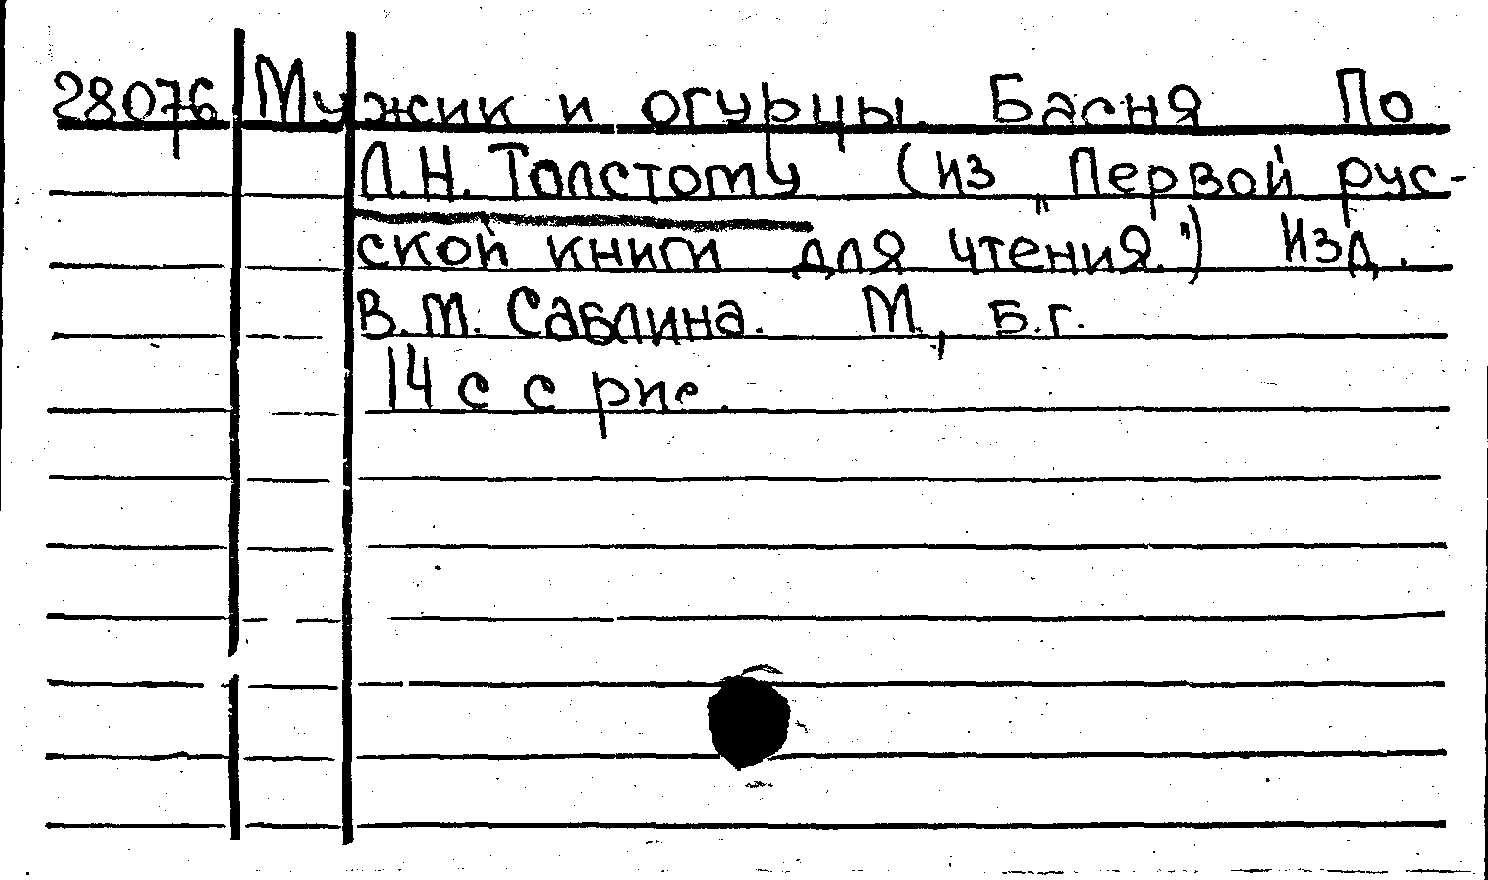 28076 Мужик и огурцы. Басня По
Л.Н. Толстому (из "Первой рус-
ской книги для чтения.") Изд.
В.М. Саблина. М., б.г.
14 с с рис.